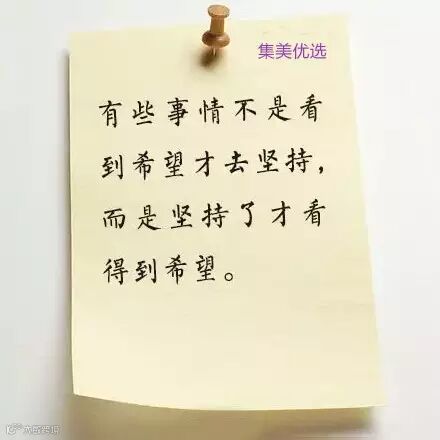 集美优选
有些事情不是看
到希望才去坚持，
而是坚持了才看
得到希望。
大数跨境